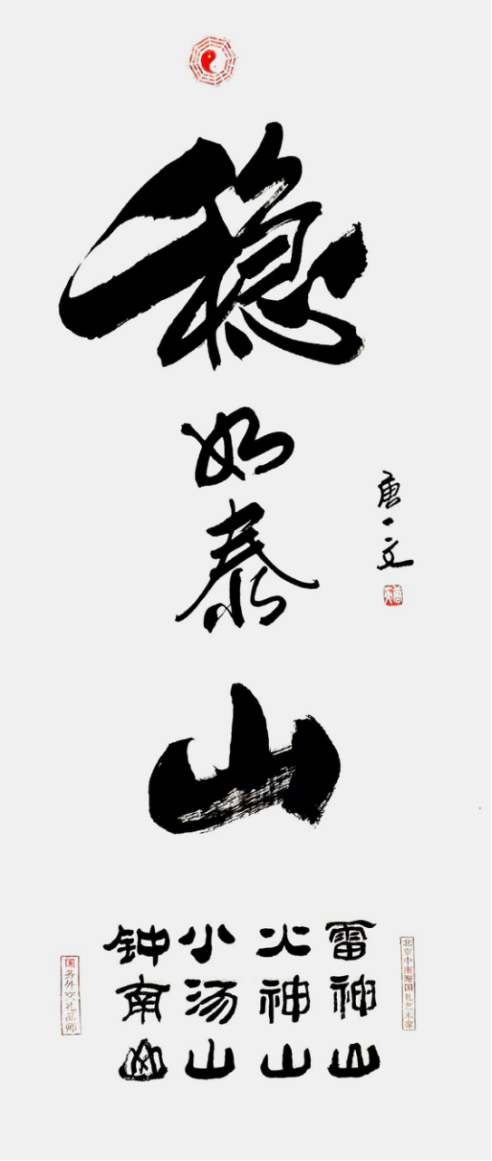 稳如泰山
唐一文
雷神山
火神山
小汤山
钟南山
北京中南海国礼艺术家
国务外交礼品师